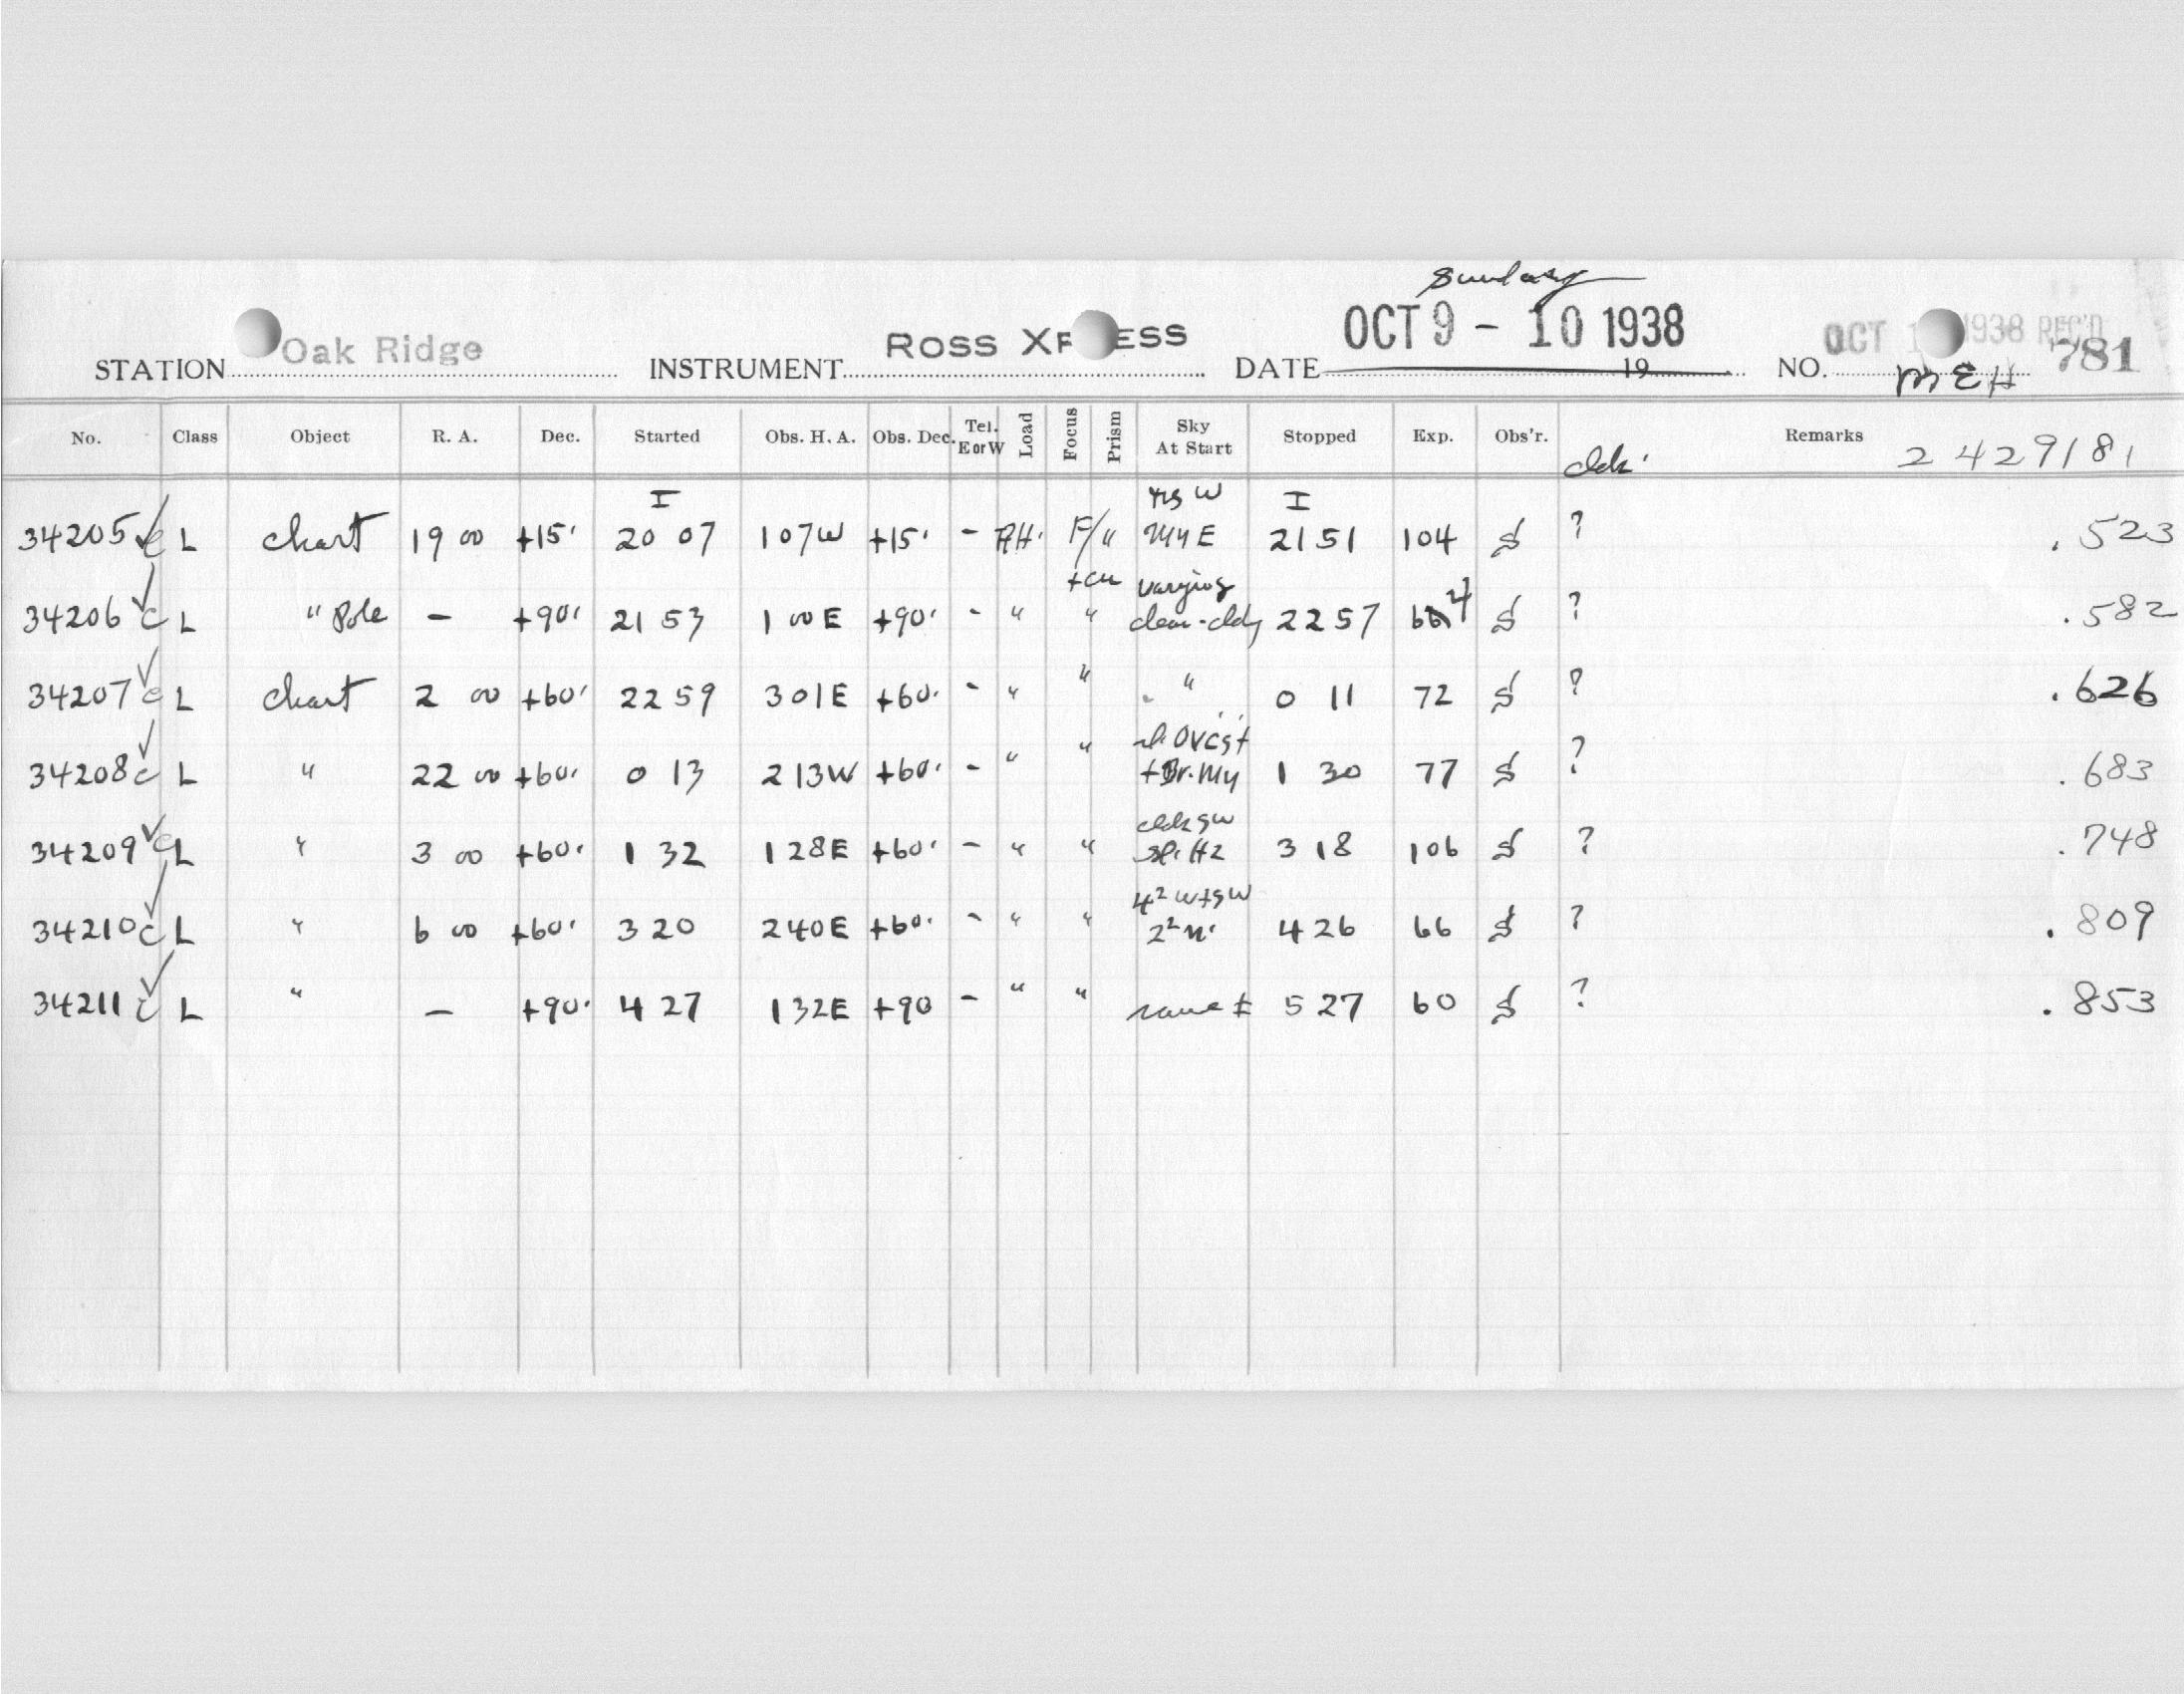 Sunday
STATION Oak Ridge INSTRUMENT ROSS XPRESS DATE OCT 9 - 10 1938 19 NO. OCT 1 1938 REC'D 781
MEH
No. Class Object R. A. Dec. Started Obs. H. A. Obs. Dec. Tel. E or W Load Focus Prism Sky At Start Stopped Exp. Obs'r. Remarks 2429181
I W I
34205 c L chart 19 00 +15· 20 07 107W +15· - RH· F/" E 2151 104 S ? .523
varying
34206 c L " Pole - +90· 21 53 1 00E +90· - " " clear-cldy 22 57 64 S ? .582
34207 c L chart 2 00 +60· 22 59 301E +60· - " " " 0 11 72 S ? .626
sl. ovcst
34208 c L " 22 00 +60· 0 13 213W +60· - " " +Br. My 1 30 77 S ? .683
SW
34209 c L " 3 00 +60· 1 32 128E +60· - " " sl. Hz 3 18 106 S ? .748
4² W+SW
34210 c L " 6 00 +60· 3 20 240E +60· - " " 2² N· 4 26 66 S ? .809
34211 c L " - +90· 4 27 132E +90 - " " same ± 5 27 60 S ? .853